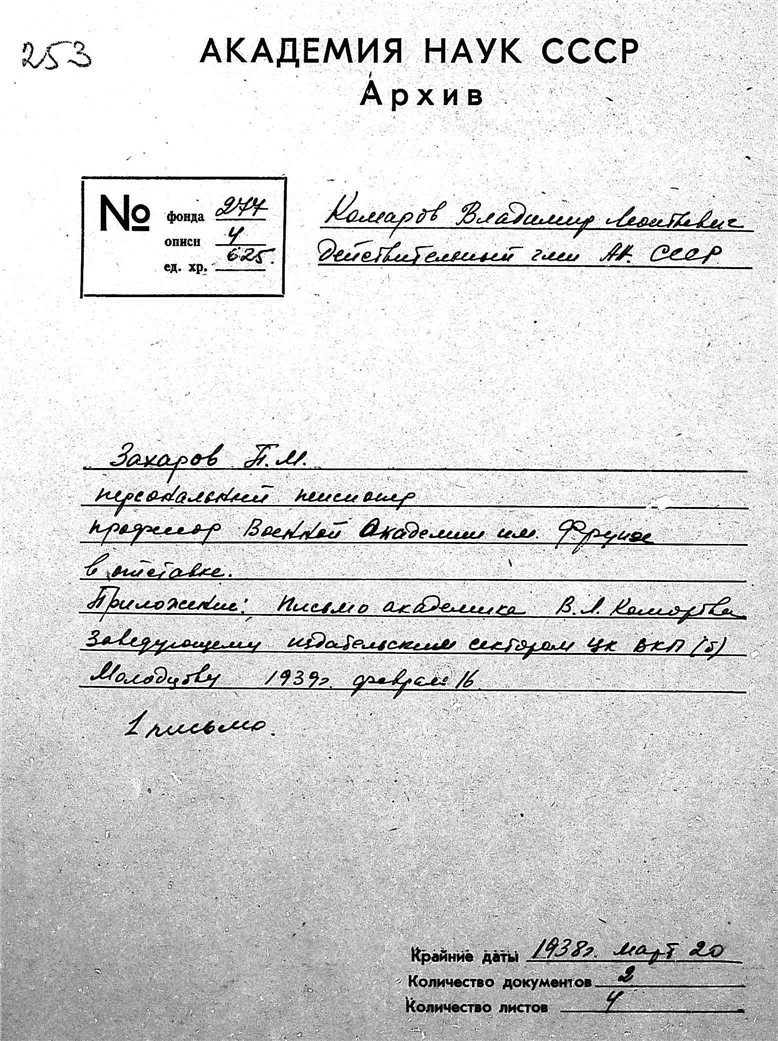 253
АКАДЕМИЯ НАУК СССР
Архив
№
фонда 277
описи 4
ед. хр. 625.
Комаров Владимир Леонтьевич
Действительный член АН. СССР
Захаров П.М.
персональный пенсионер
профессор Военной Академии им. Фрунзе
в отставке.
Приложение: Письмо академика В.Л. Комарова
Заведующему издательским сектором ЦК ВКП(б)
Молодцову 1939г. февраль 16
1 письмо.
Крайние даты 1938г. март 20
Количество документов 2
Количество листов 4